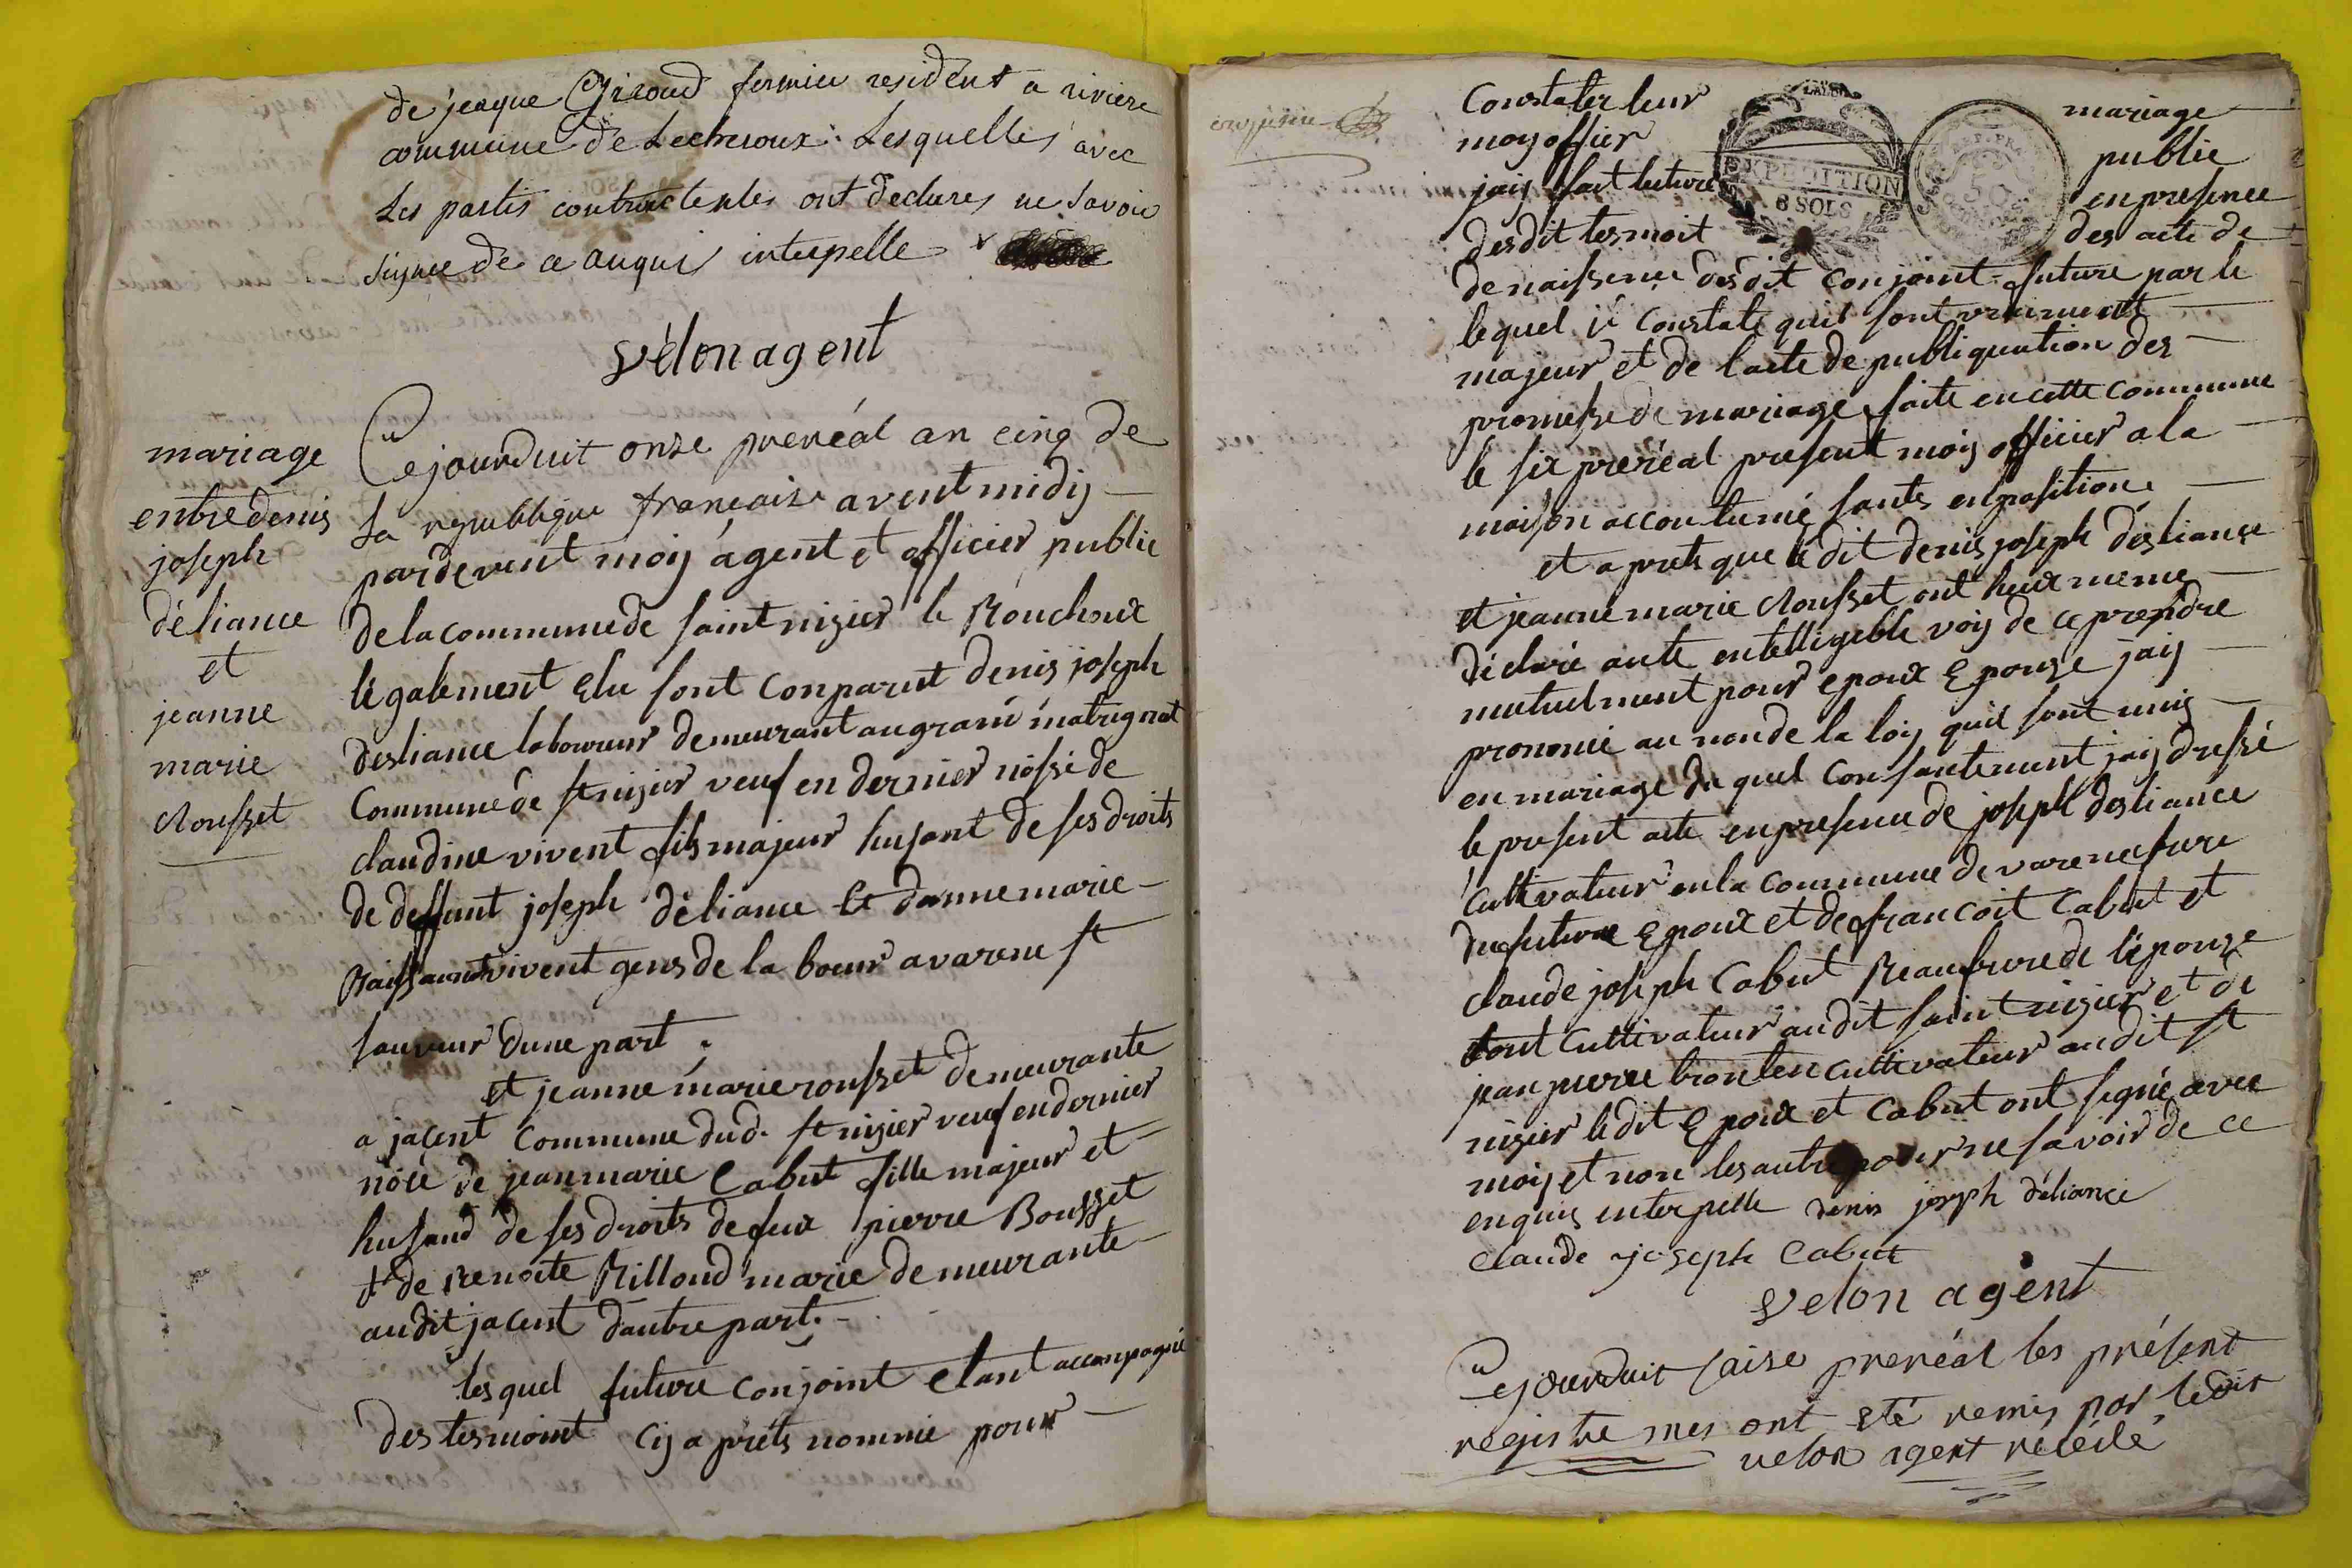 de jeaque Giroud fermier resident a riviere
commune de Lecheroux : Lesquelles avec
Les partis contractentes ont declares ne savoir
signee de ce anquis intepelle
vélon agent
mariage
entre denis
joseph
déliance
et
jeanne
marie
Rousset
Cejourduit onze preréal an cinq de
La republique française avent midij
pardevent moij ágent et officier public
de la commune de saint nizier le Bouchoux
légalement Elu sont conparut denis joseph
desliance laboureur demeurant au grand matrignat
Commune de st nizier veuf en dernier nosse de
claudine vivent fils majeur husant de ses droits
de deffunt joseph déliance Et danne marie
vivent gens de la boeur a varene st
sauveur dune part .
et jeanne marie rousset demeurante
a jacent Commune dud. st nizier veuf en dernier
nóce de jeanmarie Cabut fille majeur et
husand de ses droits de feux pierre Bousset
et de Benoite Rilloud marie demeurante
audit jacent dautre part.
lesquel future conjoint etant accompagné
des tesmoint Cij a préts nommé pour
Constater leur mariage
moij offier public
jaij fait lecture en presence
desdit tesmoit des acte de
EXPEDITION
6 SOLS
50
de naissence desdit conjoint future par le
lequel jé Constate quil sont vraiment
majeur et de lacte de publiquation des
promesse de mariage faite en cette commune
le six preréal present moij officier a la
maison accoutumé sants enpositione
et aprets que le dit denis joseph désliance
et jeanne marie Rousset ont heux meme
déclaré aute entelligeble voij de ce prendre
mutuelment pour epoux Epouze jaij
prononcé au non de la loij quil sont unis
en mariage du quel Consantement jaij dressé
le present acte en presence de joseph desliance
Cultivateur en la commune de varene frere
du future Epoux et de francoit Cabut et
claude joseph Cabut Beaufrere de lépouze
tout Cultivateur audit saint nizier et de
jean pierre cultivateur audit st
nizier ledit Epoux et Cabut ont signé avec
moij et non les autre pour ne savoir de ce
enquis enterpelle denis joseph déliance
claude joseph Cabut
velon agent
Cejourduit saise preréal les présent
registre mes ont été remis par ledit
velon agent